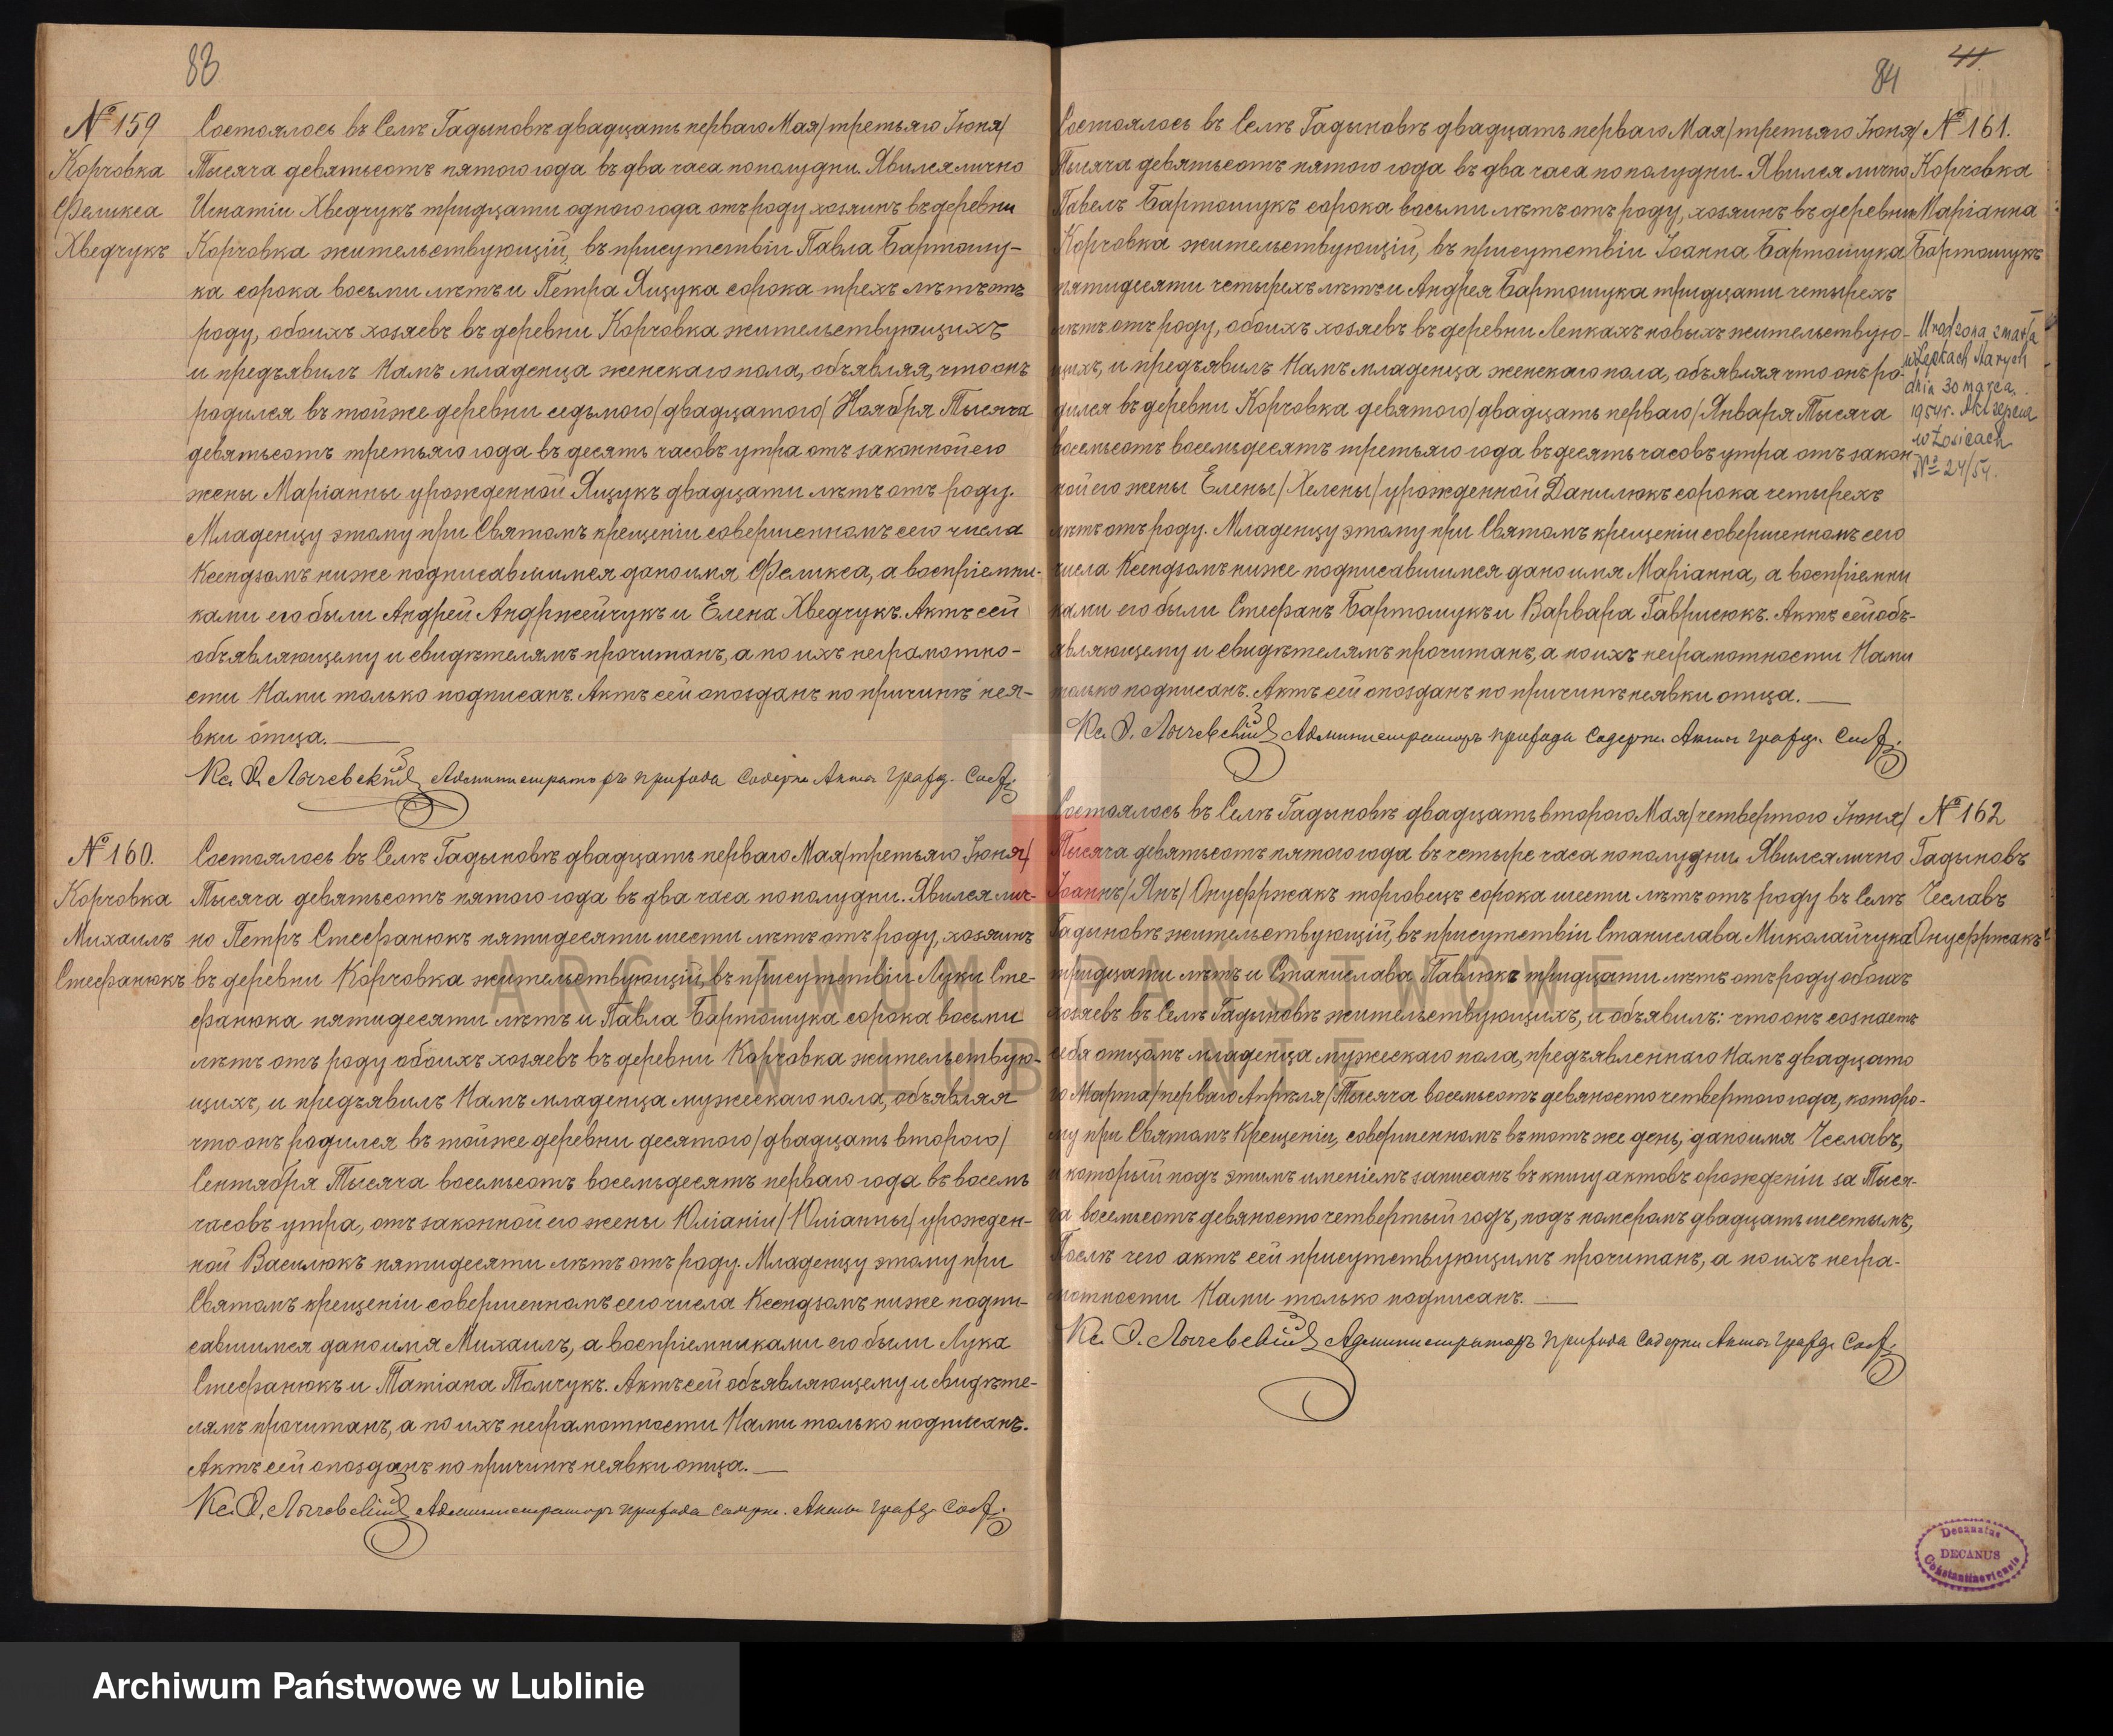 83
№ 159
Корчовка
Феликса
Хведчукъ
Состоялось въ Селѣ Гадыновѣ двадцать перваго Мая/третьяго Іюня/
Тысяча девятьсотъ пятого года въ два часа пополудни. Явился лично
Игнатіи Хведчукъ тридцати одного года отъ роду хозяинъ въ деревни
Корчовка жительствующій, въ присутствіи Павла Бартошу-
ка сорока восьми лѣтъ и Петра Яцука сорока трехъ лѣтъ отъ
роду, обоихъ хозяевъ въ деревни Корчовка жительствующихъ
и предъявилъ Намъ младенца женскаго пола, объявляя, что онъ
родился въ тойже деревни седьмого/двадцатого/ Ноября Тысяча
девятьсотъ третьяго года въ десять часовъ утра отъ законной его
жены Маріанны урожденной Яцукъ двадцати лѣтъ отъ роду.
Младенцу этому при Святомъ крещеніи совершенномъ сего числа
Ксендзомъ ниже подписавшимся дано имя Феликса, а воспріемни-
ками его были Андрей Андржейчукъ и Елена Хведчукъ. Актъ сей
объявляющему и свидѣтелямъ прочитанъ, а по ихъ неграмотно-
сти Нами только подписанъ. Актъ сей опозданъ по причинѣ нея-
вки отца.
Кс. Лычевскій Администраторъ прихода Содерж. Акты гражд. Сост.
№ 160.
Корчовка
Михаилъ
Стефанюкъ
Состоялось въ Селѣ Гадыновѣ двадцать перваго Мая/третьяго Іюня/
Тысяча девятьсотъ пятого года въ два часа пополудни. Явился лич-
но Петръ Стефанюкъ пятидесяти шести лѣтъ отъ роду, хозяинъ
въ деревни Корчовка жительствующій, въ присутствіи Луки Сте-
фанюка пятидесяти лѣтъ и Павла Бартошука сорока восьми
лѣтъ отъ роду обоихъ хозяевъ въ деревни Корчовка жительствую-
щихъ, и предъявилъ Намъ младенца мужескаго пола, объявляя
что онъ родился въ тойже деревни десятого/двадцать второго/
Сентября Тысяча восемьсотъ восемьдесятъ перваго года въ восемь
часовъ утра, отъ законной его жены Юліаніи/Юліанны/ урожден-
ной Василюкъ пятидесяти лѣтъ отъ роду. Младенцу этому при
Святомъ крещеніи совершенномъ сего числа Ксендзомъ ниже подпи-
савшимся дано имя Михаилъ, а воспріемниками его были Лука
Стефанюкъ и Татіана Томчукъ. Актъ сей объявляющему и свидѣте-
лямъ прочитанъ, а по ихъ неграмотности Нами только подписанъ.
Актъ сей опозданъ по причинѣ неявки отца.
Кс. Лычевскій Администраторъ прихода Содерж. Акты гражд. Сост.
41
84
Состоялось въ Селѣ Гадыновѣ двадцать перваго Мая/третьяго Іюня/
Тысяча девятьсотъ пятого года въ два часа пополудни. Явился лично
Павелъ Бартошукъ сорока восьми лѣтъ отъ роду, хозяинъ въ деревни
Корчовка жительствующій, въ присутствіи Іоанна Бартошука
пятидесяти четырехъ лѣтъ и Андрея Бартошука тридцати четырехъ
лѣтъ отъ роду, обоихъ хозяевъ въ деревни Лепкахъ новыхъ жительствую-
щихъ, и предъявилъ Намъ младенца женскаго пола, объявляя что онъ ро-
дился въ деревни Корчовка девятого/двадцать перваго/ Января Тысяча
восемьсотъ восемьдесятъ третьяго года въ десять часовъ утра отъ закон-
ной его жены Елены/Хелены/ урожденной Данилюкъ сорока четырехъ
лѣтъ отъ роду. Младенцу этому при Святомъ крещеніи совершенномъ сего
числа Ксендзомъ ниже подписавшимся дано имя Маріанна, а воспріемни
ками его были Стефанъ Бартошукъ и Варвара Гаврисюкъ. Актъ сей объ-
являющему и свидѣтелямъ прочитанъ, а по ихъ неграмотности Нами
только подписанъ. Актъ сей опозданъ по причинѣ неявки отца.
Кс. Лычевскій Администраторъ прихода Содерж. Акты гражд. Сост.
№ 161.
Корчовка
Маріанна
Бартошукъ
Urodzona zmarła
w Łepkach Starych
dnia 30 marca
1954 r. Akt zejścia
w Łosicach
№ 24/54.
Состоялось въ Селѣ Гадыновѣ двадцать второго Мая/четвертого Іюня/
Тысяча девятьсотъ пятого года въ четыре часа пополудни. Явился лично
Іоаннъ/Янъ/ Онуфржакъ торговецъ сорока шести лѣтъ отъ роду въ Селѣ
Гадыновѣ жительствующій, въ присутствіи Станислава Миколайчука
тридцати лѣтъ и Станислава Павлюкъ тридцати лѣтъ отъ роду обоихъ
хозяевъ въ Селѣ Гадыновѣ жительствующихъ, и объявилъ: что онъ сознаетъ
себя отцомъ младенца мужескаго пола, предъявленнаго Намъ двадцато
го Марта/перваго Апрѣля/ Тысяча восемьсотъ девяносто четвертого года, которо-
му при Святомъ Крещеніи, совершенномъ въ тотъ же день, дано имя Чеславъ,
и который подъ этимъ именіемъ записанъ въ книгу актовъ орожденіи за Тыся-
ча восемьсотъ девяносто четвертый годъ, подъ номеромъ двадцать шестымъ,
Послѣ чего актъ сей присутствующимъ прочитанъ, а по ихъ негра-
мотности Нами только подписанъ.
Кс. Лычевскій Администраторъ прихода Содерж. Акты гражд. Сост.
№ 162
Гадыновъ
Чеславъ
Онуфржакъ
Decanatus
DECANUS
Constantinoviensis
ARCHIWUM PAŃSTWOWE
W LUBLINIE
Archiwum Państwowe w Lublinie